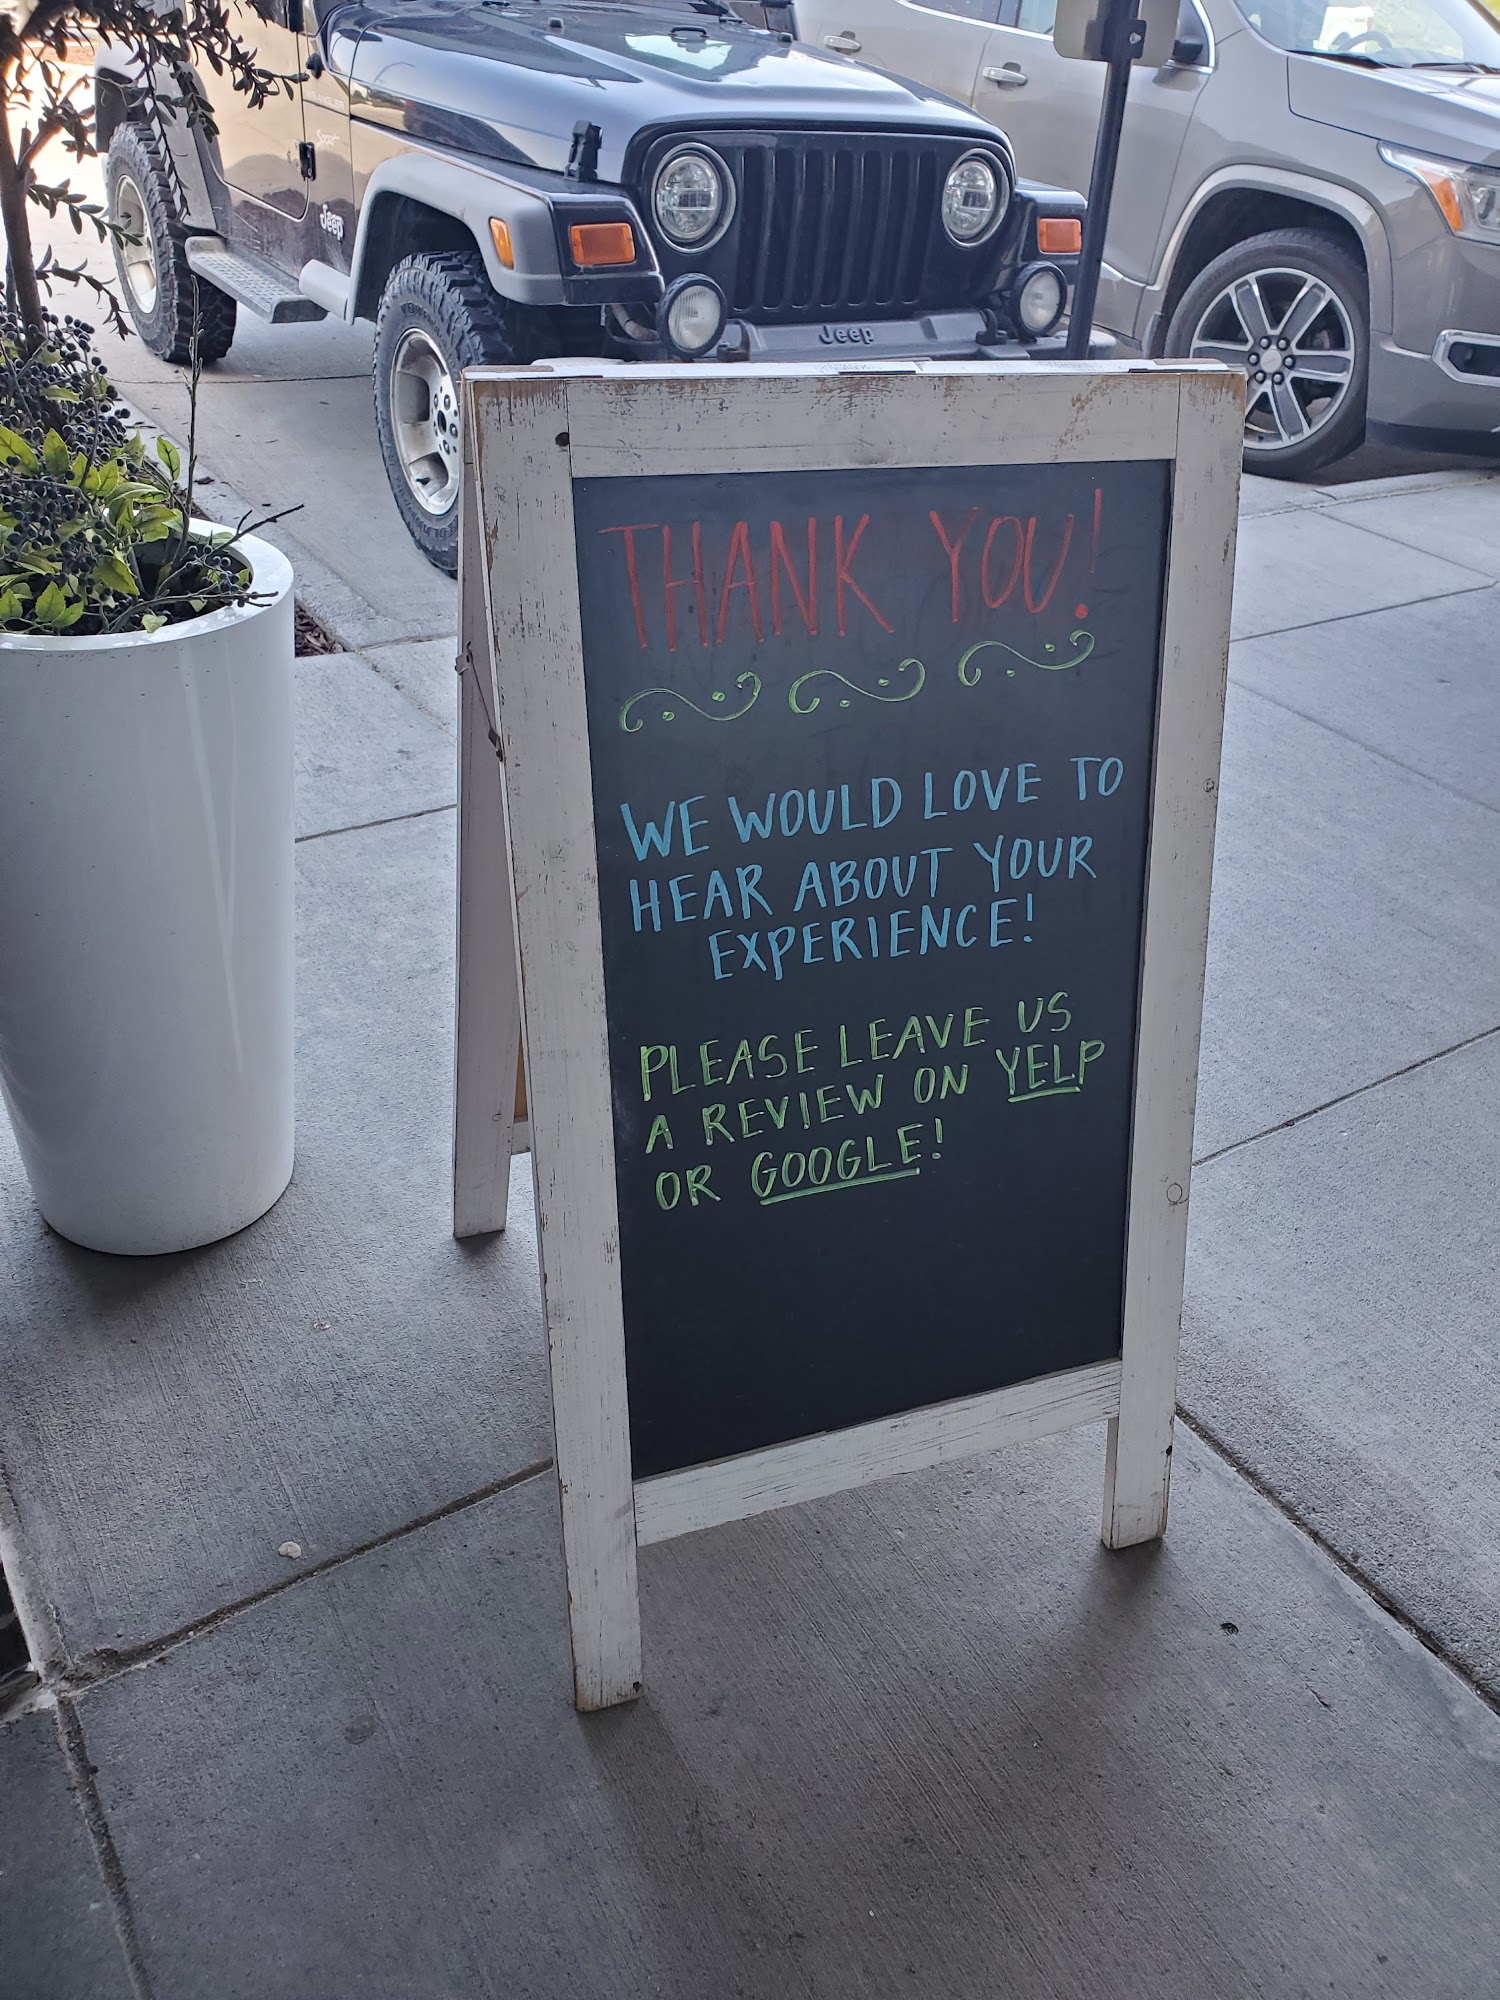 WRANGLER
Sport
Jeep
Jeep
THANK YOU!
WE WOULD LOVE TO
HEAR ABOUT YOUR
EXPERIENCE!
PLEASE LEAVE US
A REVIEW ON YELP
OR GOOGLE!